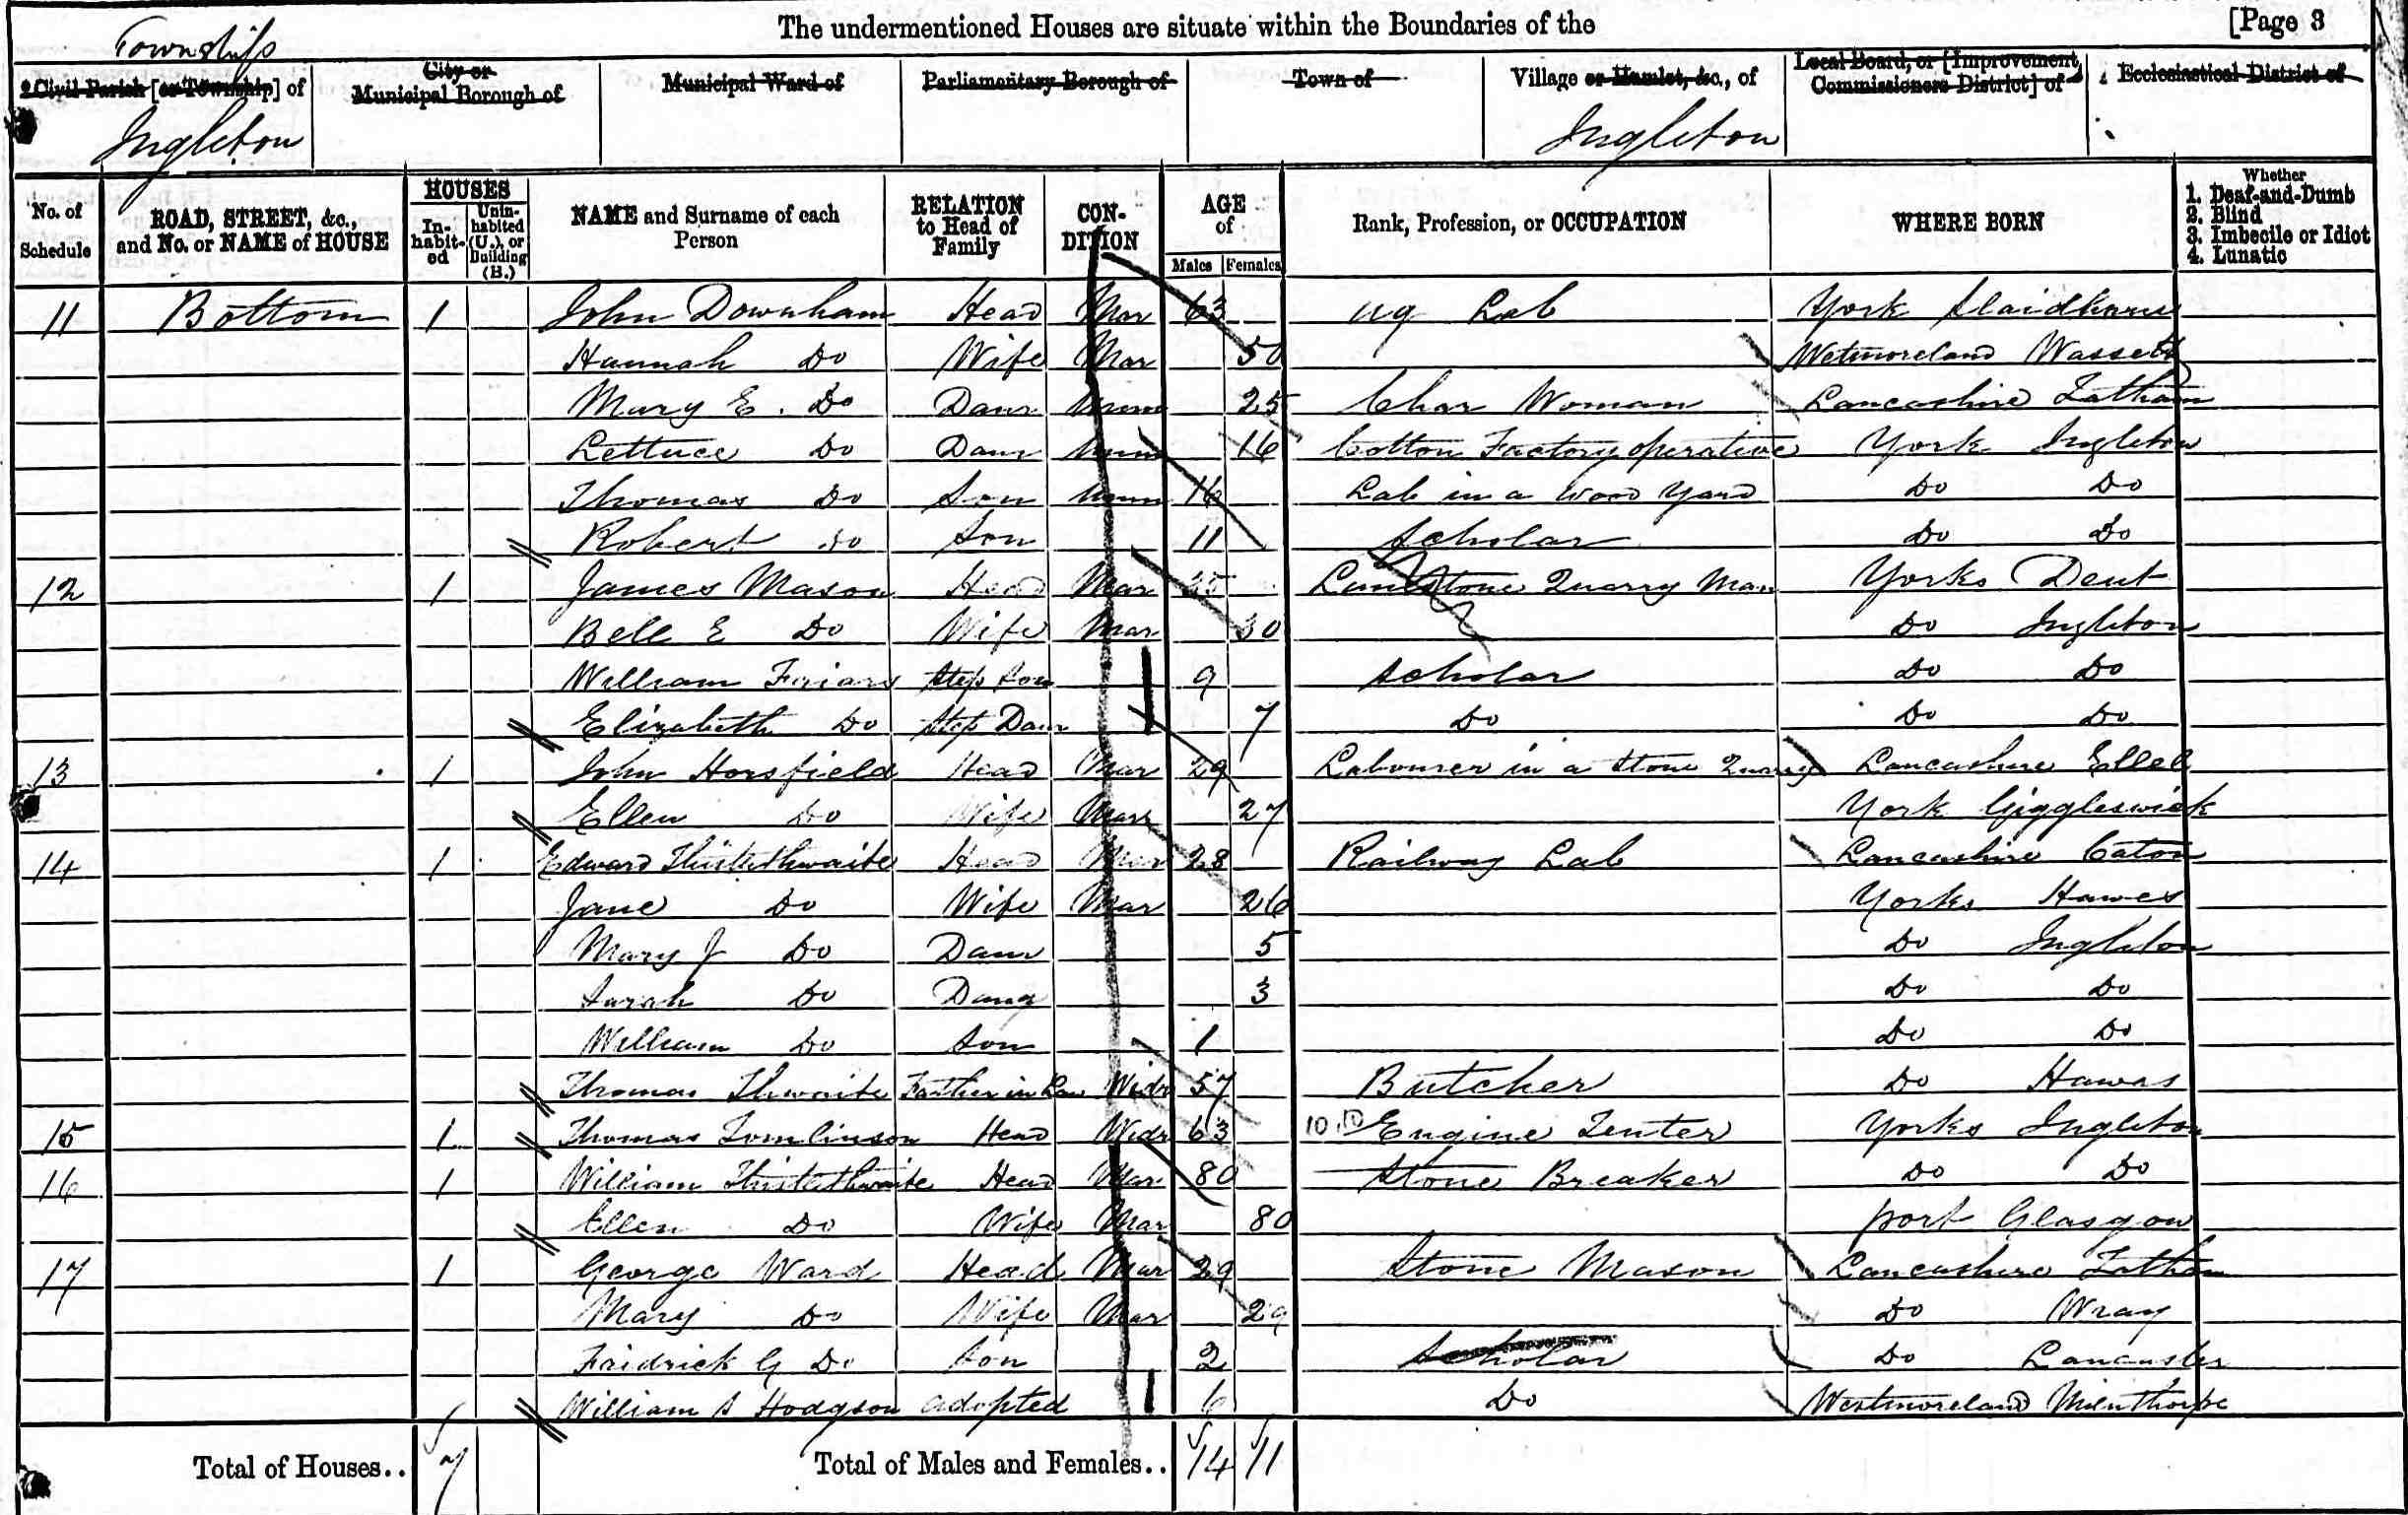 The undermentioned Houses are situate within the Boundaries of the [Page 3
Township
Civil Parish [or Township] of City or Municipal Borough of Municipal Ward of Parliamentary Borough of Town of Village or Hamlet, &c., of Local Board, or [Improvement Commissioners District] of Ecclesiastical District of
Ingleton Ingleton
No. of Schedule ROAD, STREET, &c., and No. or NAME of HOUSE HOUSES In-habit-ed Unin-habited (U.), or Building (B.) NAME and Surname of each Person RELATION to Head of Family CON-DITION AGE of Males Females Rank, Profession, or OCCUPATION WHERE BORN Whether 1. Deaf-and-Dumb 2. Blind 3. Imbecile or Idiot 4. Lunatic
11 Bottom 1 John Downham Head Mar 63 Ag Lab York Slaidburn
Hannah Do Wife Mar 50 Wetmoreland
Mary E. Do Daur Unm 25 Char Woman Lancashire Tatham
Lettuce Do Daur Unm 16 Cotton Factory operative York Ingleton
Thomas Do Son Unm 16 Lab in a Wood Yard Do Do
Robert Do Son 11 Scholar Do Do
12 1 James Mason Head Mar 25 Limestone Quarry Man Yorks Dent
Bell E Do Wife Mar 30 Do Ingleton
William Friars Step Son 9 Scholar Do Do
Elizabeth Do Step Daur 7 Do Do Do
13 1 John Horsfield Head Mar 29 Labourer in a Stone Quarry Lancashire Ellel
Ellen Do Wife Mar 27 York Giggleswick
14 1 Edward Thistlethwaite Head Mar 28 Railway Lab Lancashire Caton
Jane Do Wife Mar 26 Yorks Hawes
Mary J Do Daur 5 Do Ingleton
Sarah Do Daug 3 Do Do
William Do Son 1 Do Do
Thomas Thwaite Father in Law Widr 57 Butcher Do Hawes
15 1 Thomas Tomlinson Head Widr 63 Engine Tenter Yorks Ingleton
16 1 William Thistlethwaite Head Mar 80 Stone Breaker Do Do
Ellen Do Wife Mar 80 port Glasgow
17 1 George Ward Head Mar 29 Stone Mason Lancashire Tatham
Mary Do Wife Mar 29 Do Wray
Fridrick G Do Son 2 Scholar Do Lancaster
William S Hodgson adopted 6 Do Westmoreland Milnthorpe
Total of Houses.. 7 Total of Males and Females.. 14 11